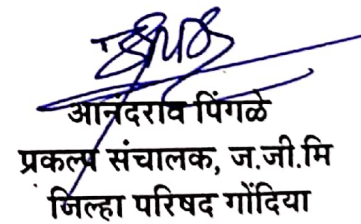 आनंदराव पिंगळे
प्रकल्प संचालक, ज.जी.मि
जिल्हा परिषद गोंदिया